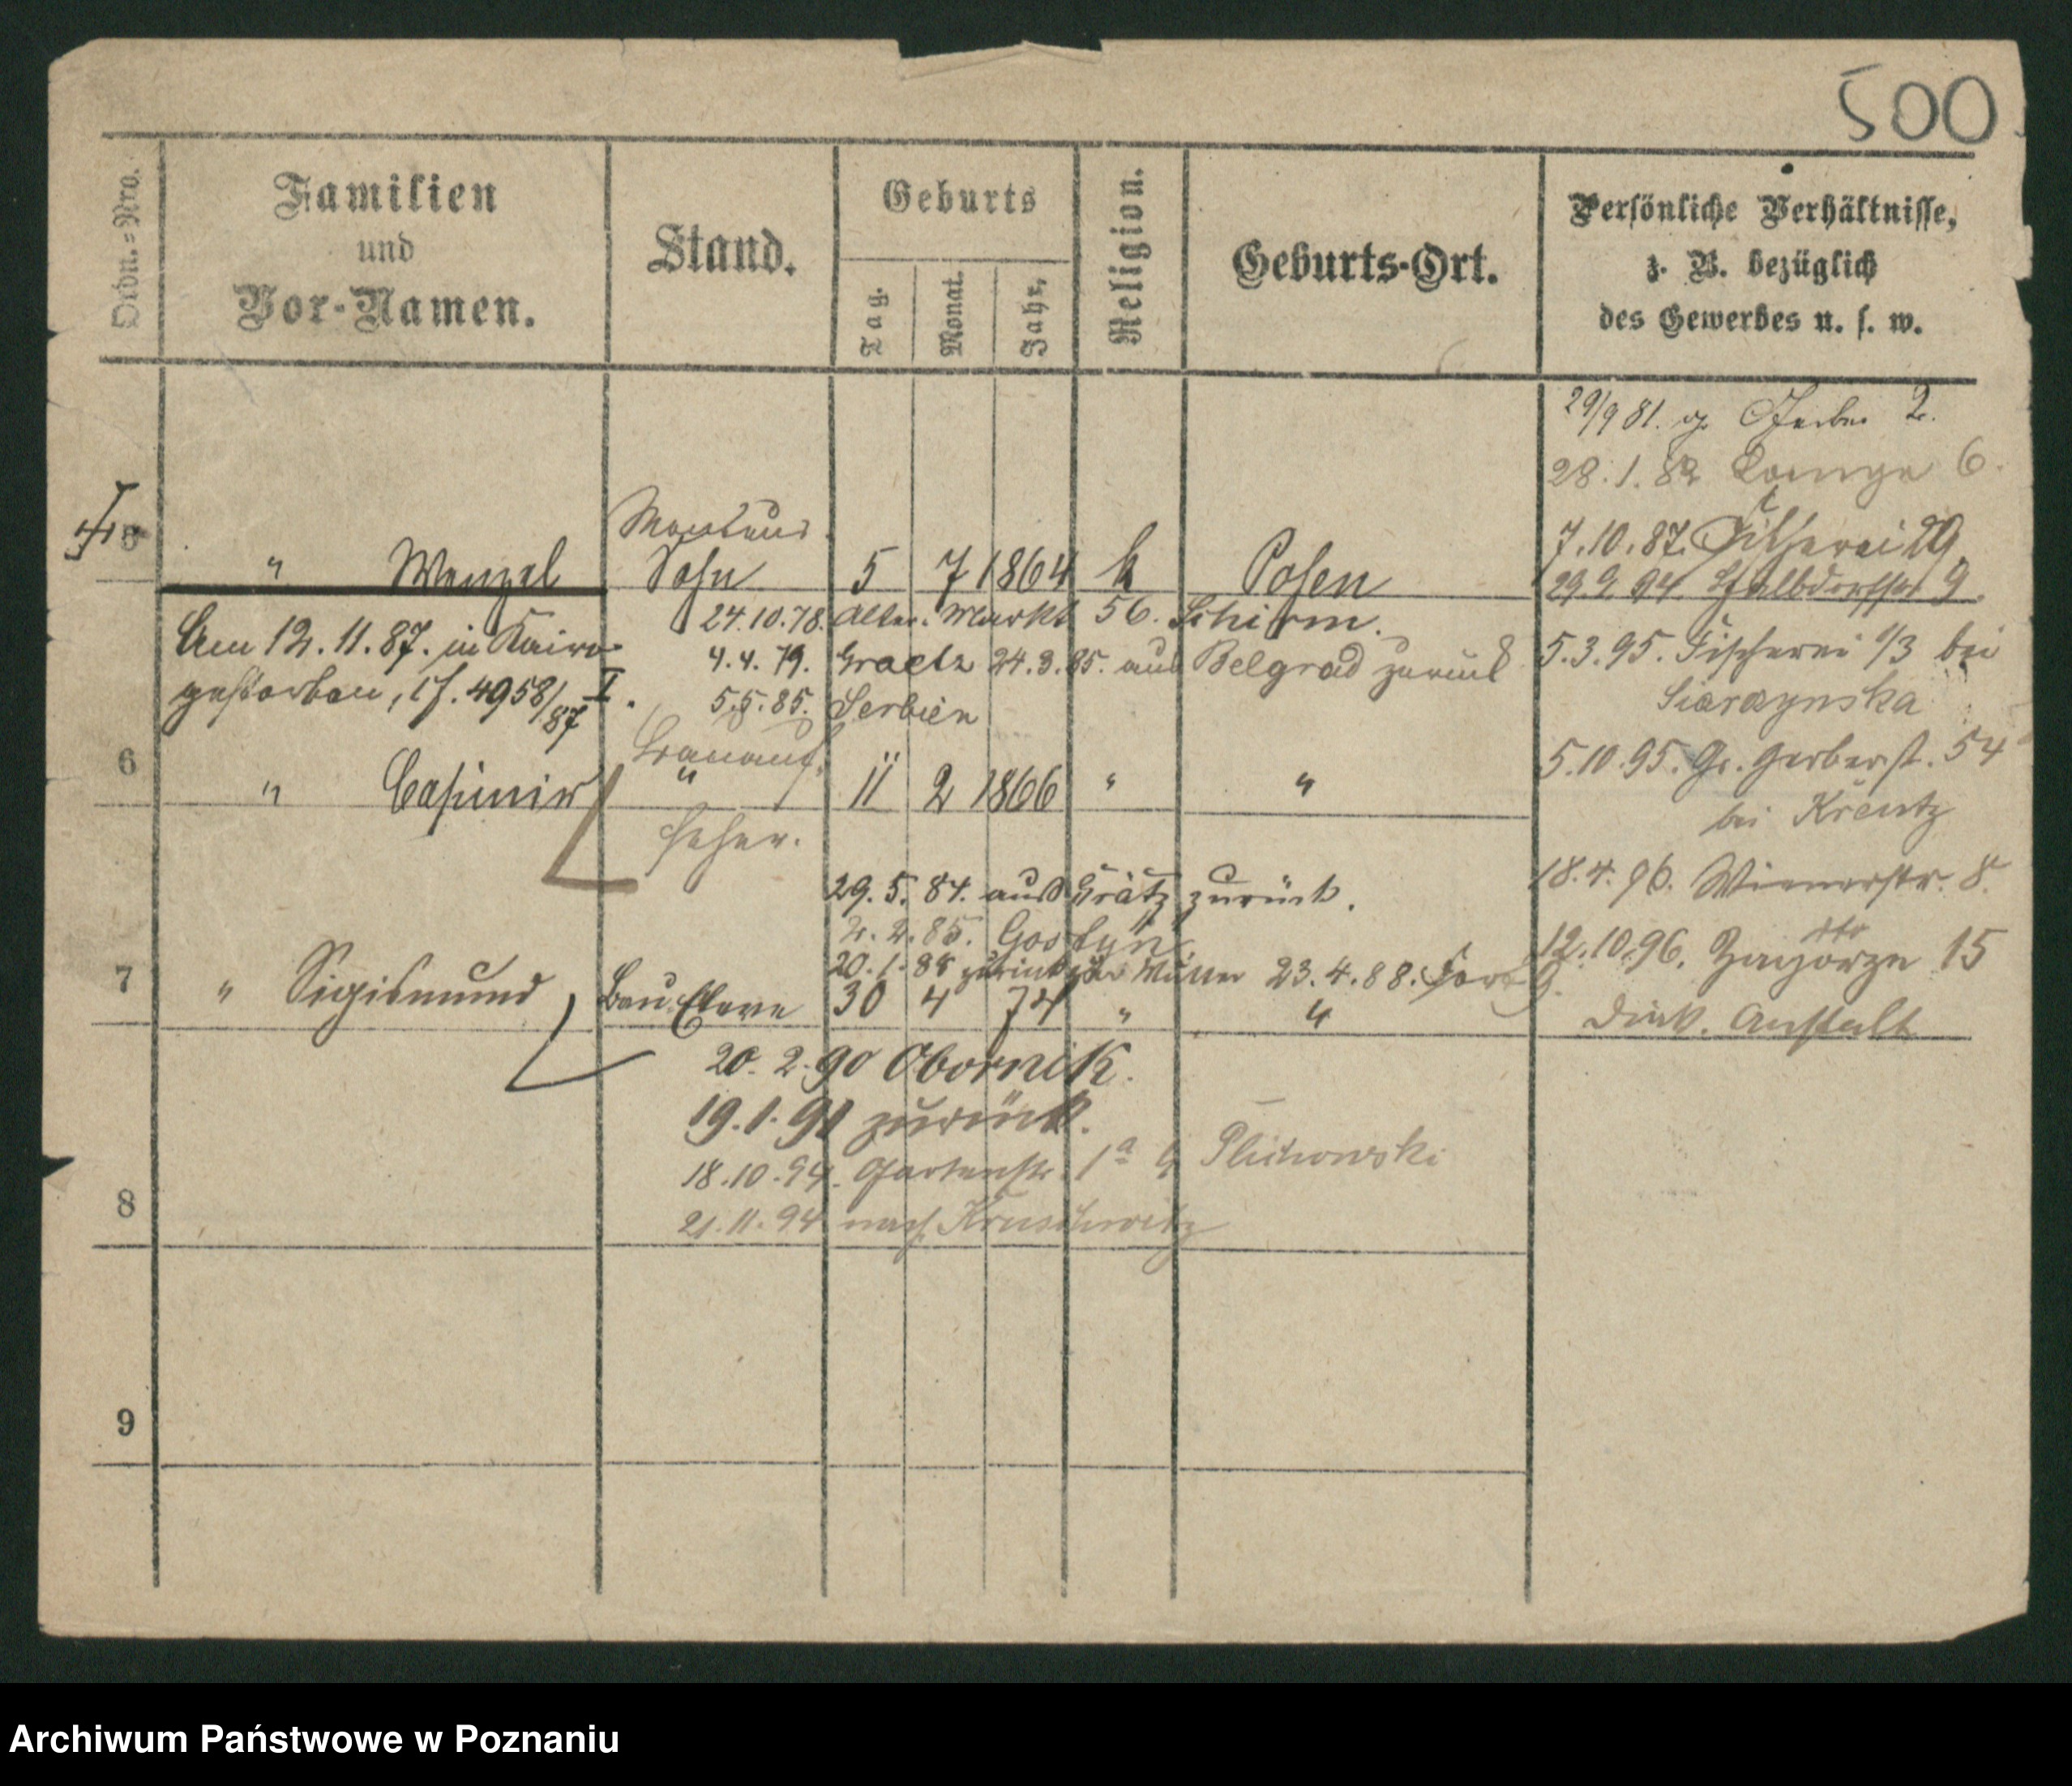 500
Ordn.=Nro.
Familien
und
Vor-Namen.
Stand.
Geburts
Tag.
Monat.
Jahr.
Religion.
Geburts-Ort.
Persönliche Verhältnisse,
z. B. bezüglich
des Gewerbes u. s. w.
29/9 81. gr. Gerber 2.
28.1.82 6.
7.10.87. Fischerei 29
29.9.94. Halbdorfstr 9.
5.3.95. Fischerei 1/3 bei
Siaraynska
5.10.95. Gr. Gerberst. 54
bei Krentz
18.4.96. Wienerstr. 8.
12.10.96. Zagorze 15
Diak. Anstalt
5
" Wenzel Sohn 5 7 1864 k Posen
Am 12.11.87. in Kairo
gestorben, cf. 4958/87 I.
24.10.78. Alter. Markt 56. Schirm.
4.4.79. Graetz 24.3.85. aus Belgrad zurück
5.5.85. Serbien
6 " Casimir " 11 2 1866 " "
29.5.84. aus Grätz zurück.
2.2.85. Gostyn
20.1.88 zurück zur Mutter 23.4.88. fort
7 " Sigismund Bau Eleve 30 4 74 " "
20.2.90 Obornik.
19.1.91 zurück.
18.10.94. Gartenstr. 1a Plichowski
21.11.94 nach Kruschwitz
8
9
Archiwum Państwowe w Poznaniu